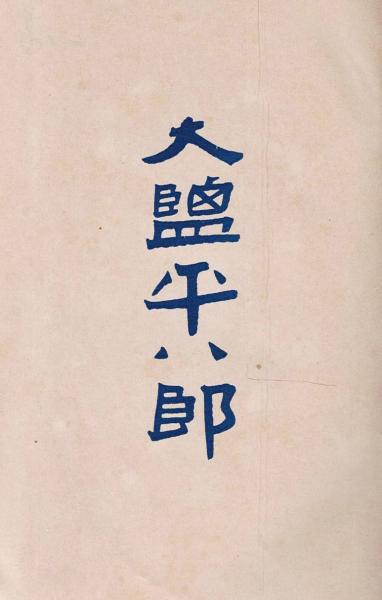 大鹽平八郎